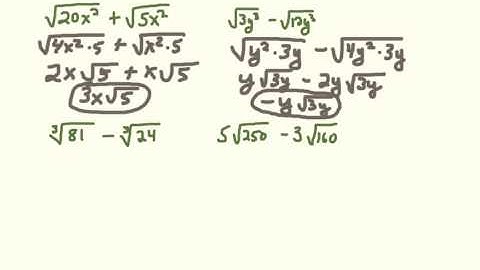 √20x² + √5x²
√4x²·5 + √x²·5
2x√5 + x√5
3x√5
√3y³ − √12y³
√y²·3y − √4y²·3y
y√3y − 2y√3y
−y√3y
∛81 − ∛24
5√250 − 3√160